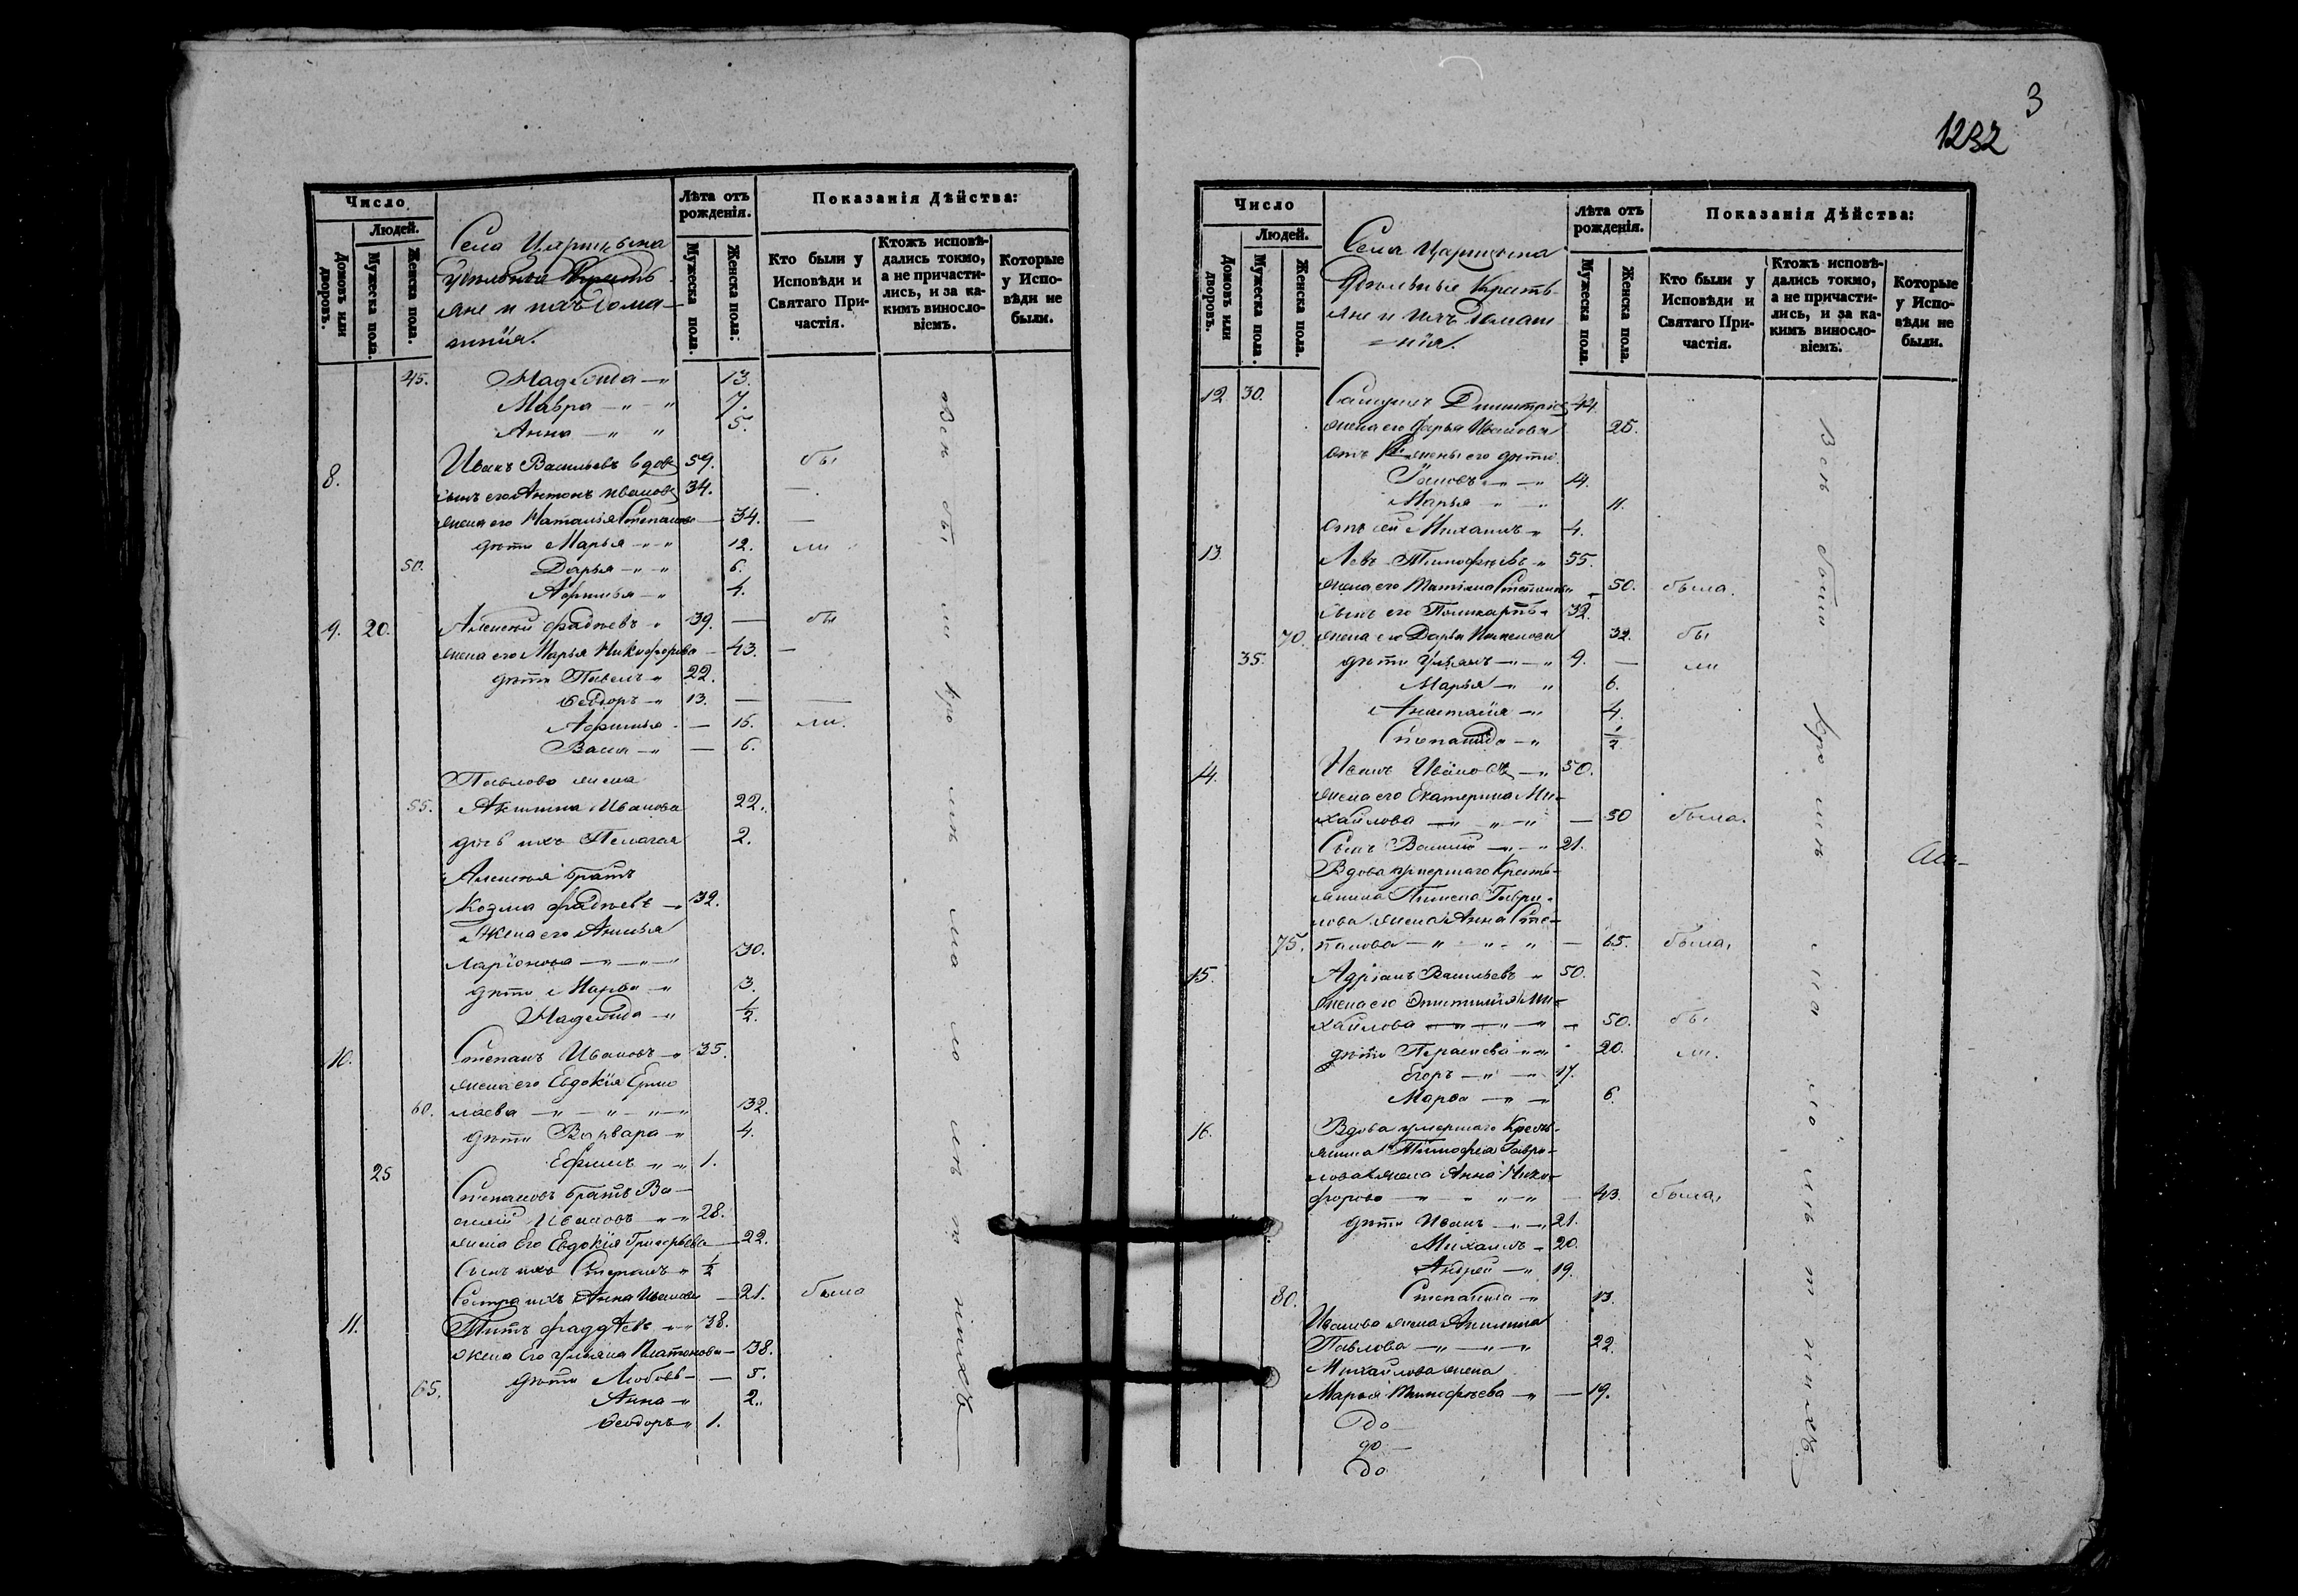 Число
Людей.
Домовъ или дворовъ.
Мужеска пола.
Женска пола.
Села Царицына
Удѣльные Кресть-
яне и ихъ дома-
шнія.
Лѣта отъ рожденія.
Мужеска пола.
Женска пола.
Показанія Дѣйства:
Кто были у Исповѣди и Святаго При-частія.
Ктожъ исповѣ-дались токмо, а не причасти-лись, и за ка-кимъ винословіемъ.
Которые у Испо-вѣди не были.
45. Надежда 13.
Мавра 7.
Анна 5.
8. Иванъ Васильевъ вдовъ 59. бы
сынъ его Антонъ Ивановъ 34.
жена его Наталія Степанова 34.
дѣти Марья 12. ли
50. Дарья 6.
Афимья 4.
9. 20. Алексѣй Фадѣевъ 39. бы
жена его Марья Никифорова 43.
дѣти Павелъ 22.
Ѳедоръ 13.
Афимья 15. ли.
6.
Павлова жена
55. Акилина Иванова 22.
дочь ихъ Пелагея 2.
Алексѣя братъ
Козма Фадѣевъ 32.
Жена его Анисья
Ларіонова 30.
дѣти Марѳа 3.
Надежда 1/2.
10. Степанъ Ивановъ 35.
жена его Евдокія Ермо
60. лаева 32.
дѣти Варвара 4.
25 Ефимъ 1.
Степановъ братъ Ва-
силій Ивановъ 28.
жена Его Евдокія Григорьева 22.
Сынъ ихъ Степанъ 1/2
Сестра ихъ Анна Иванова 21. была
11. Титъ Фаддѣевъ 38.
жена Его Ульяна Платонова 38.
65. дѣти Любовь 5.
Анна 2.
Ѳеодоръ 1.
Всѣ бы ли кро мѣ ма ло лѣ т нихъ
3
1232
Число
Людей.
Домовъ или дворовъ.
Мужеска пола.
Женска пола.
Села Царицына
Удѣльные Кресть-
яне и ихъ домаш
нія.
Лѣта отъ рожденія.
Мужеска пола.
Женска пола.
Показанія Дѣйства:
Кто были у Исповѣди и Святаго При-частія.
Ктожъ исповѣ-дались токмо, а не причасти-лись, и за ка-кимъ винословіемъ.
Которые у Испо-вѣди не были.
12. 30. Самуилъ Димитріевъ 44.
жена его Дарья Иванова 25.
отъ 1й жены его дѣти
14.
Марья 11.
отъ сей Михаилъ 4.
13. Левъ Тимофѣевъ 55.
жена его Татіана Степанова 50. была.
сынъ его Поликарпъ 32.
70. жена его Дарья 32. бы
35. дѣти Ульянъ 9. ли
Марья 6.
Анастасія 4.
Степанида 1/2
14. Иванъ Ивановъ 50.
жена его Екатерина Ми-
хайлова 50 была.
Сынъ Василій 21.
Вдова умершаго Кресть-
янина Пимена Гаври-
лова жена Анна Сте-
75. панова 65. была,
15. Адріанъ Васильевъ 50.
жена его Епистимія Ми-
хайлова 50. бы
дѣти Параскева 20. ли.
Егоръ 17.
Марѳа 6.
16. Вдова умершаго Кресть-
янина Тимофея Гаври-
лова жена Анна Ники-
форова 43. была,
дѣти Иванъ 21.
Михаилъ 20.
Андрей 19.
80. Степанида 13.
Иванова жена Акилина
Павлова 22.
Михайлова жена
Марья Тимофѣева 19.
До
до
До
Всѣ были кро мѣ ма ло лѣ т нихъ